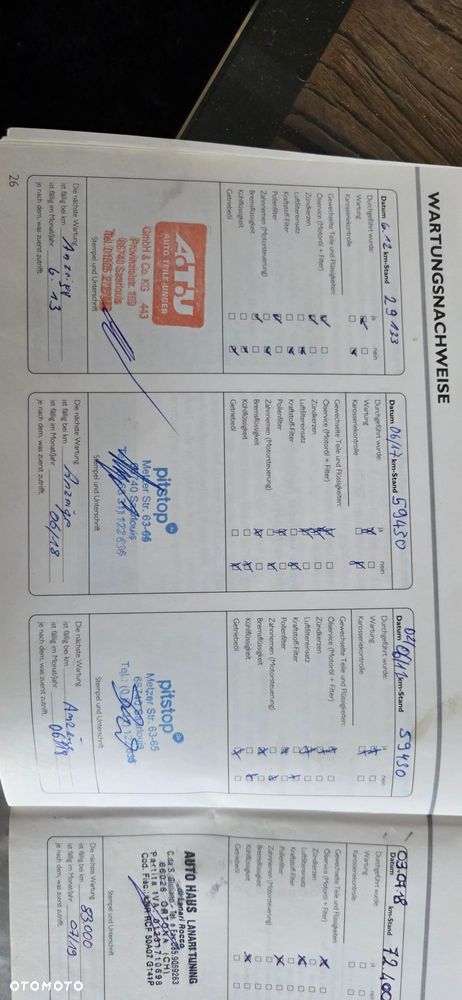 WARTUNGSNACHWEISE
Datum 6.12 km-Stand 29133
Durchgeführt wurde: ja nein
Wartung
Karosseriekontrolle
Gewechselte Teile und Flüssigkeiten:
Ölservice (Motoröl + Filter)
Zündkerzen
Luftfiltereinsatz
Kraftstoff-Filter
Pollenfilter
Zahnriemen (Motorsteuerung)
Bremsflüssigkeit
Kühlflüssigkeit
Getriebeöl
A.T.U
AUTO TEILE UNGER
GmbH & Co. KG 443
Provinzialstr. 189
66740 Saarlouis
Stempel und Unterschrift
Die nächste Wartung
ist fällig bei km Anzeige
ist fällig im Monat/Jahr 6.13
je nach dem, was zuerst zutrifft.
26
Datum 06/17 km-Stand 59430
Durchgeführt wurde: ja nein
Wartung
Karosseriekontrolle
Gewechselte Teile und Flüssigkeiten:
Ölservice (Motoröl + Filter)
Zündkerzen
Luftfiltereinsatz
Kraftstoff-Filter
Pollenfilter
Zahnriemen (Motorsteuerung)
Bremsflüssigkeit
Kühlflüssigkeit
Getriebeöl
pitstop
Metzer Str. 63-65
Stempel und Unterschrift
Die nächste Wartung
ist fällig bei km Anzeige
ist fällig im Monat/Jahr 06/18
je nach dem, was zuerst zutrifft.
Datum km-Stand 59430
Durchgeführt wurde: ja nein
Wartung
Karosseriekontrolle
Gewechselte Teile und Flüssigkeiten:
Ölservice (Motoröl + Filter)
Zündkerzen
Luftfiltereinsatz
Kraftstoff-Filter
Pollenfilter
Zahnriemen (Motorsteuerung)
Bremsflüssigkeit
Kühlflüssigkeit
Getriebeöl
pitstop
Metzer Str. 63-65
Stempel und Unterschrift
Die nächste Wartung
ist fällig bei km
ist fällig im Monat/Jahr
je nach dem, was zuerst zutrifft.
Datum km-Stand 72.400
Durchgeführt wurde: ja nein
Wartung
Karosseriekontrolle
Gewechselte Teile und Flüssigkeiten
Ölservice (Motoröl + Filter)
Zündkerzen
Luftfiltereinsatz
Kraftstoff-Filter
Pollenfilter
Zahnriemen (Motorsteuerung)
Bremsflüssigkeit
Kühlflüssigkeit
Getriebeöl
AUTO HAUS LANARI TUNING
Lanari Rocco
66026 ORTONA (CH)
Partita IVA
Cod. Fisc.
Stempel und Unterschrift
Die nächste Wartung
ist fällig bei km 83.000
ist fällig im Monat/Jahr 07/19
je nach dem, was zuerst zutrifft.
OTOMOTO